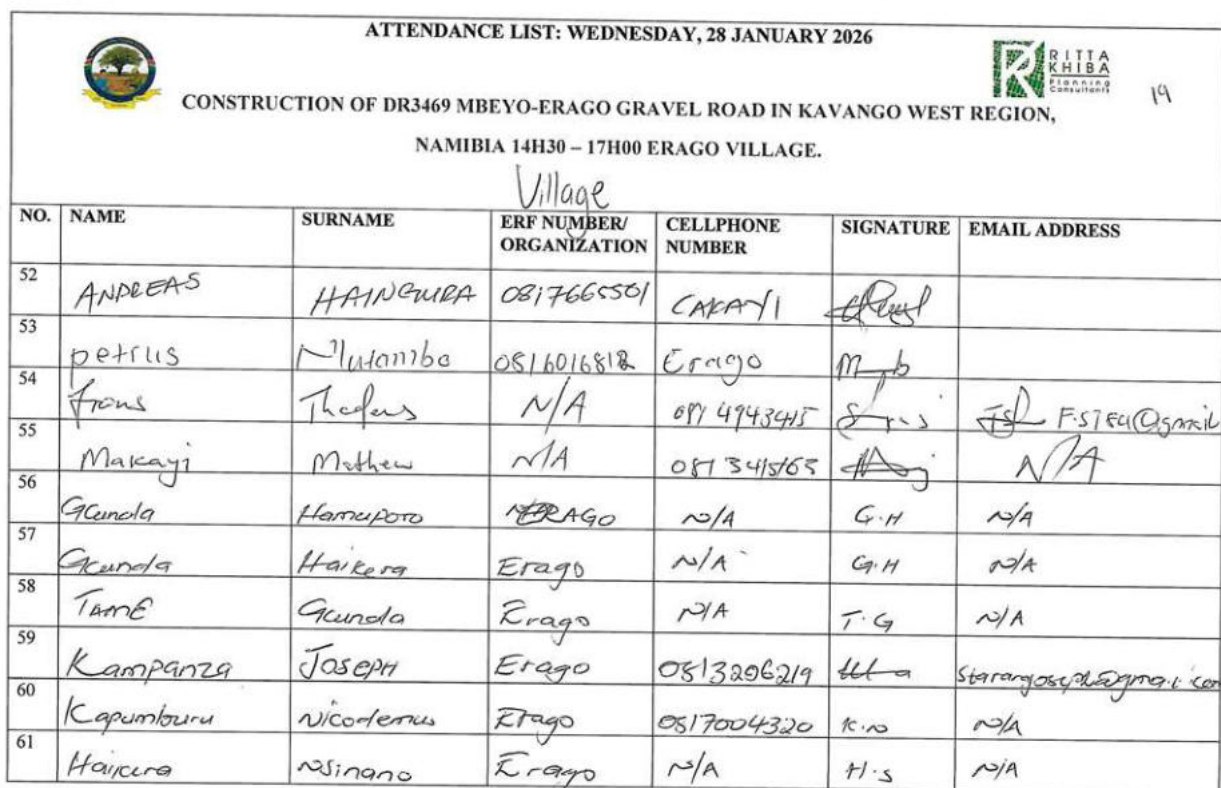 ATTENDANCE LIST: WEDNESDAY, 28 JANUARY 2026
RITTA
KHIBA
Planning
Consultants
19
CONSTRUCTION OF DR3469 MBEYO-ERAGO GRAVEL ROAD IN KAVANGO WEST REGION,
NAMIBIA 14H30 – 17H00 ERAGO VILLAGE.
Village
NO. NAME SURNAME ERF NUMBER/ ORGANIZATION CELLPHONE NUMBER SIGNATURE EMAIL ADDRESS
52 ANDREAS HAINGURA 0817665501 CAKAYI
53 petrus Mutambo 0816016812 Erago
54 frans N/A
55 Makayi Mathew N/A N/A
56 Gcunda Hamuporo ERAGO N/A G.H N/A
57 Gcunda Haikera Erago N/A G.H N/A
58 TAME Gcunda Erago N/A T.G N/A
59 Kampanza JOSEPH Erago 0813206219
60 Kapumburu Nicodemus Erago 0817004320 K.N N/A
61 Haikera Nsinano Erago N/A H.S N/A